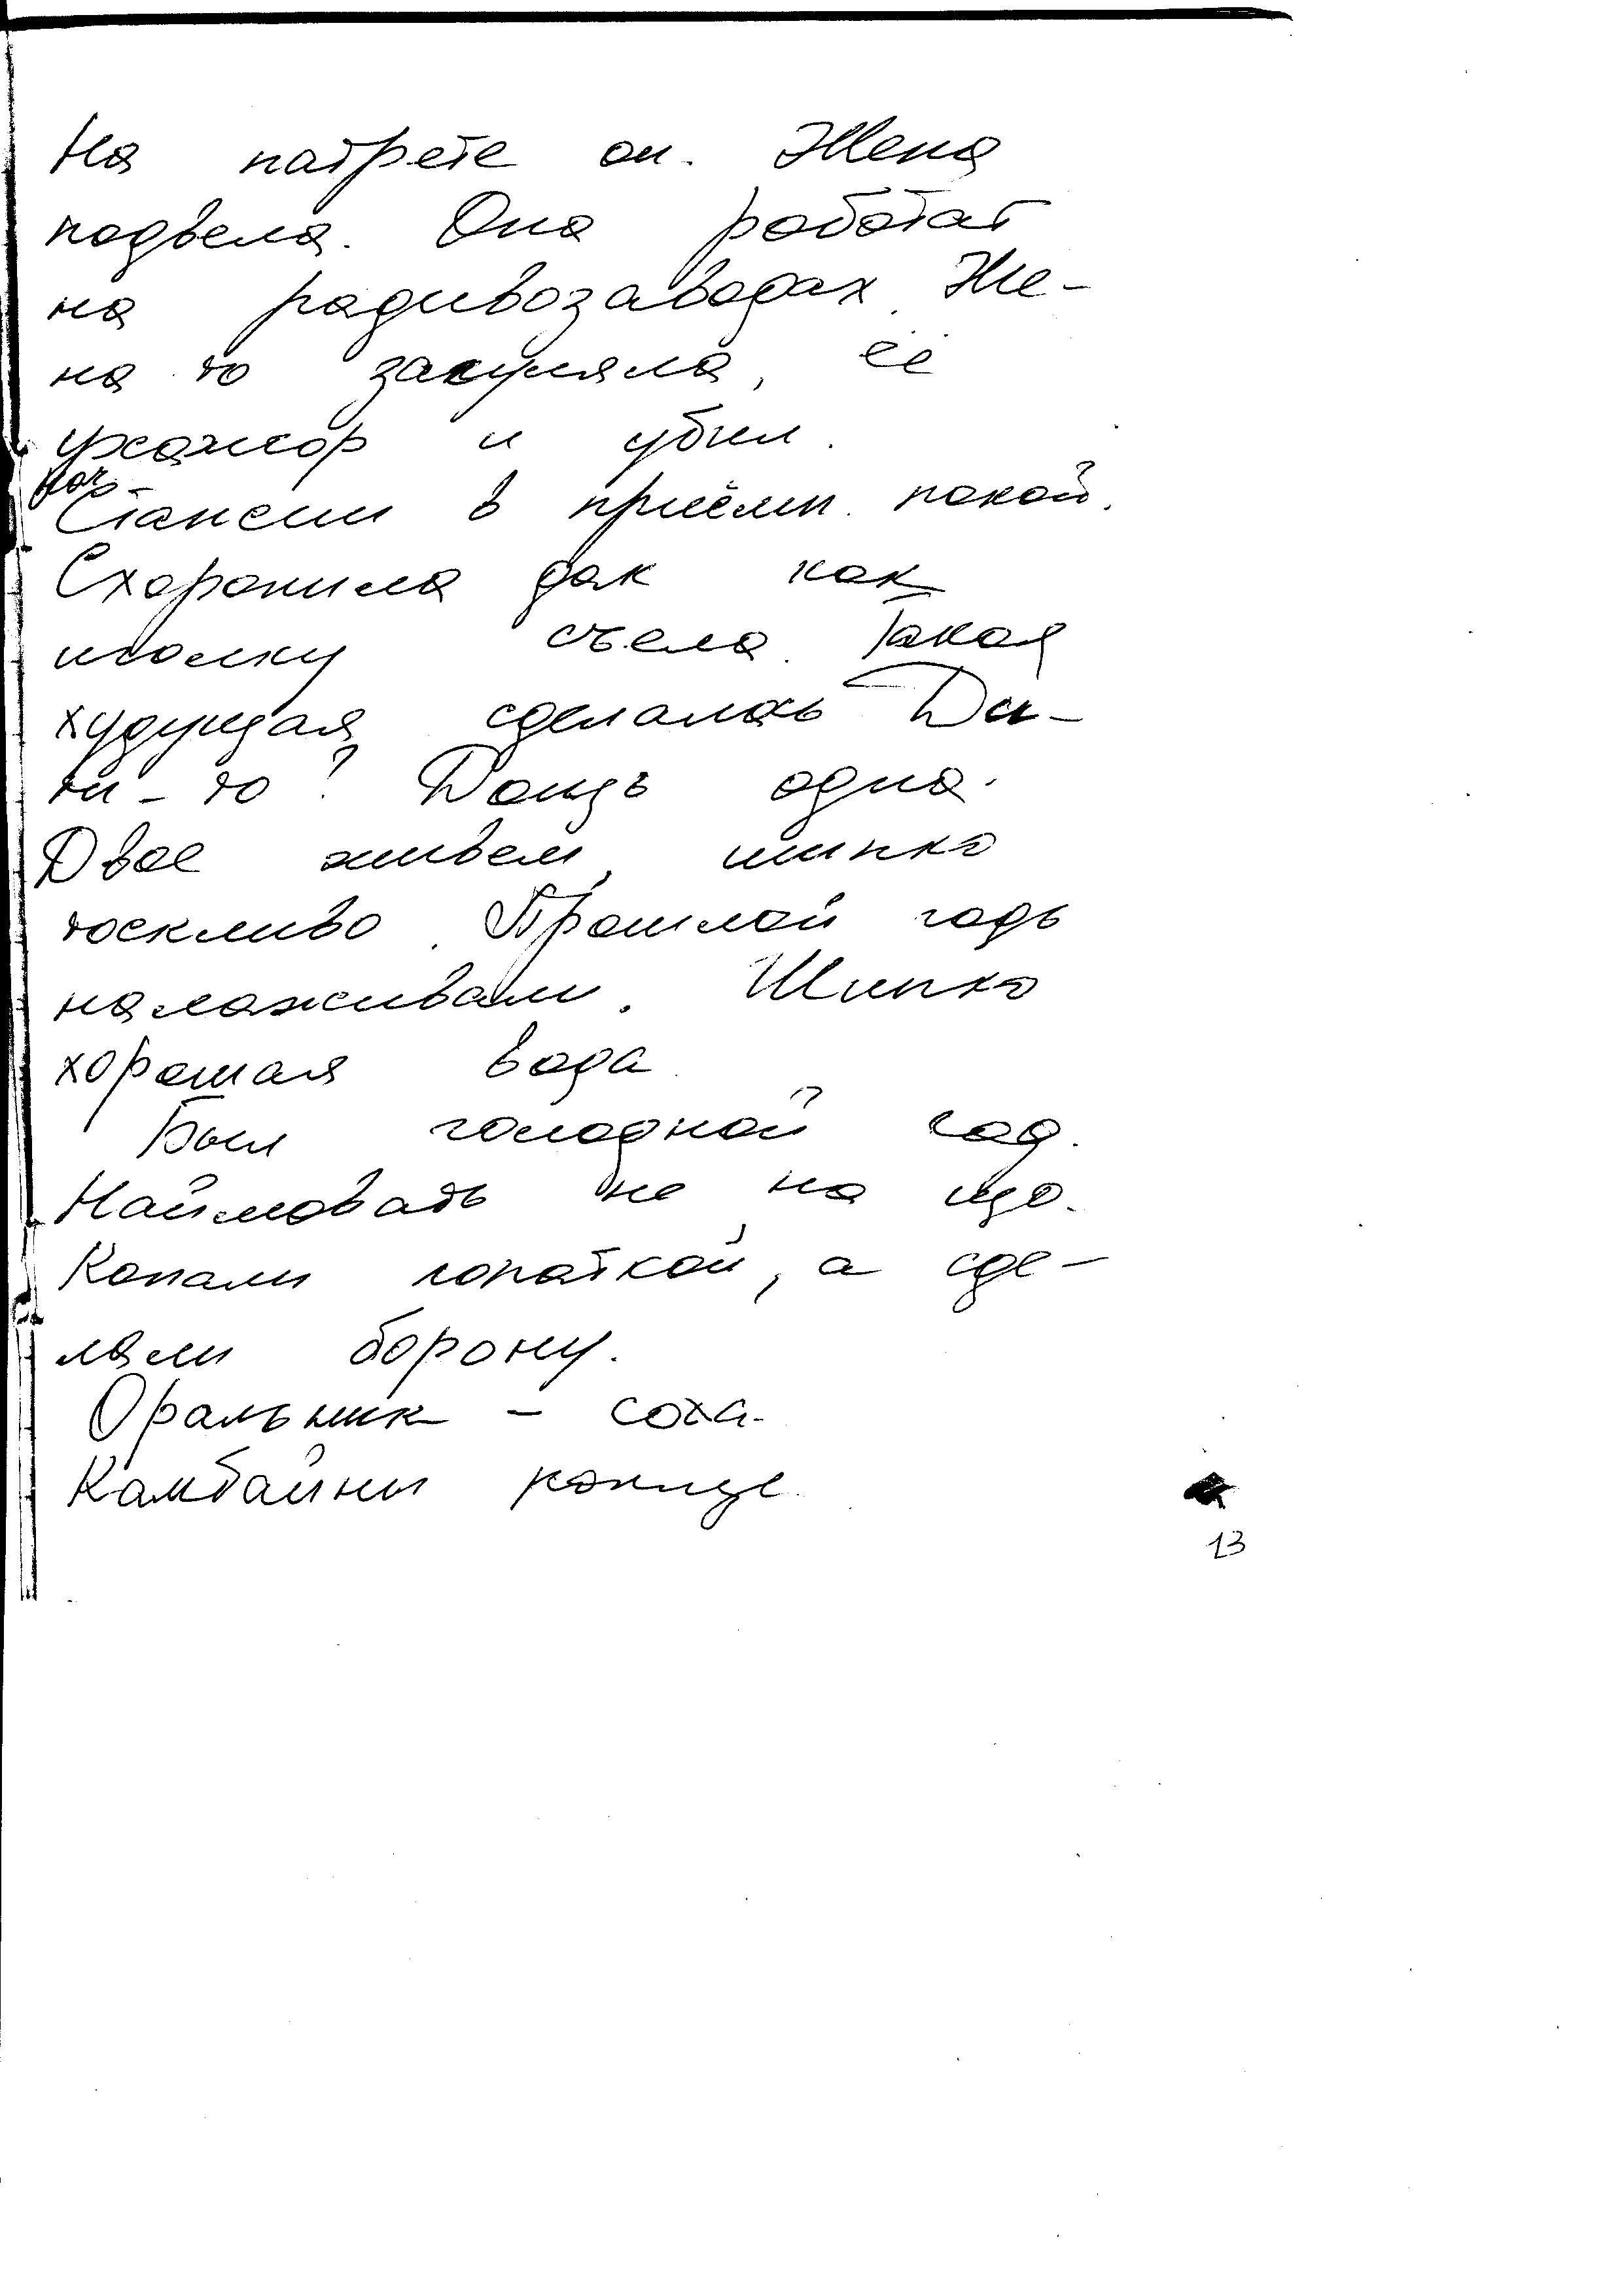 На патрете он. Жена
подвела. Она роботат
на радивозаводах. Же-
на то загуляла, её
ухажор и убил.
Стансии в приёмн. покой.
Схоронила дак как
иголку съела. Такая
худущая сделалась Ди-
ти-то? Дощь одна.
Двое живем, шипко
тоскливо. Прошлой годь
налаживали. Шипко
хорошая вода.
Был голодной год.
Наймовать не на що.
Копали лопаткой, а сде-
ляли борону.
Оральник – соха.
Комбайны
13